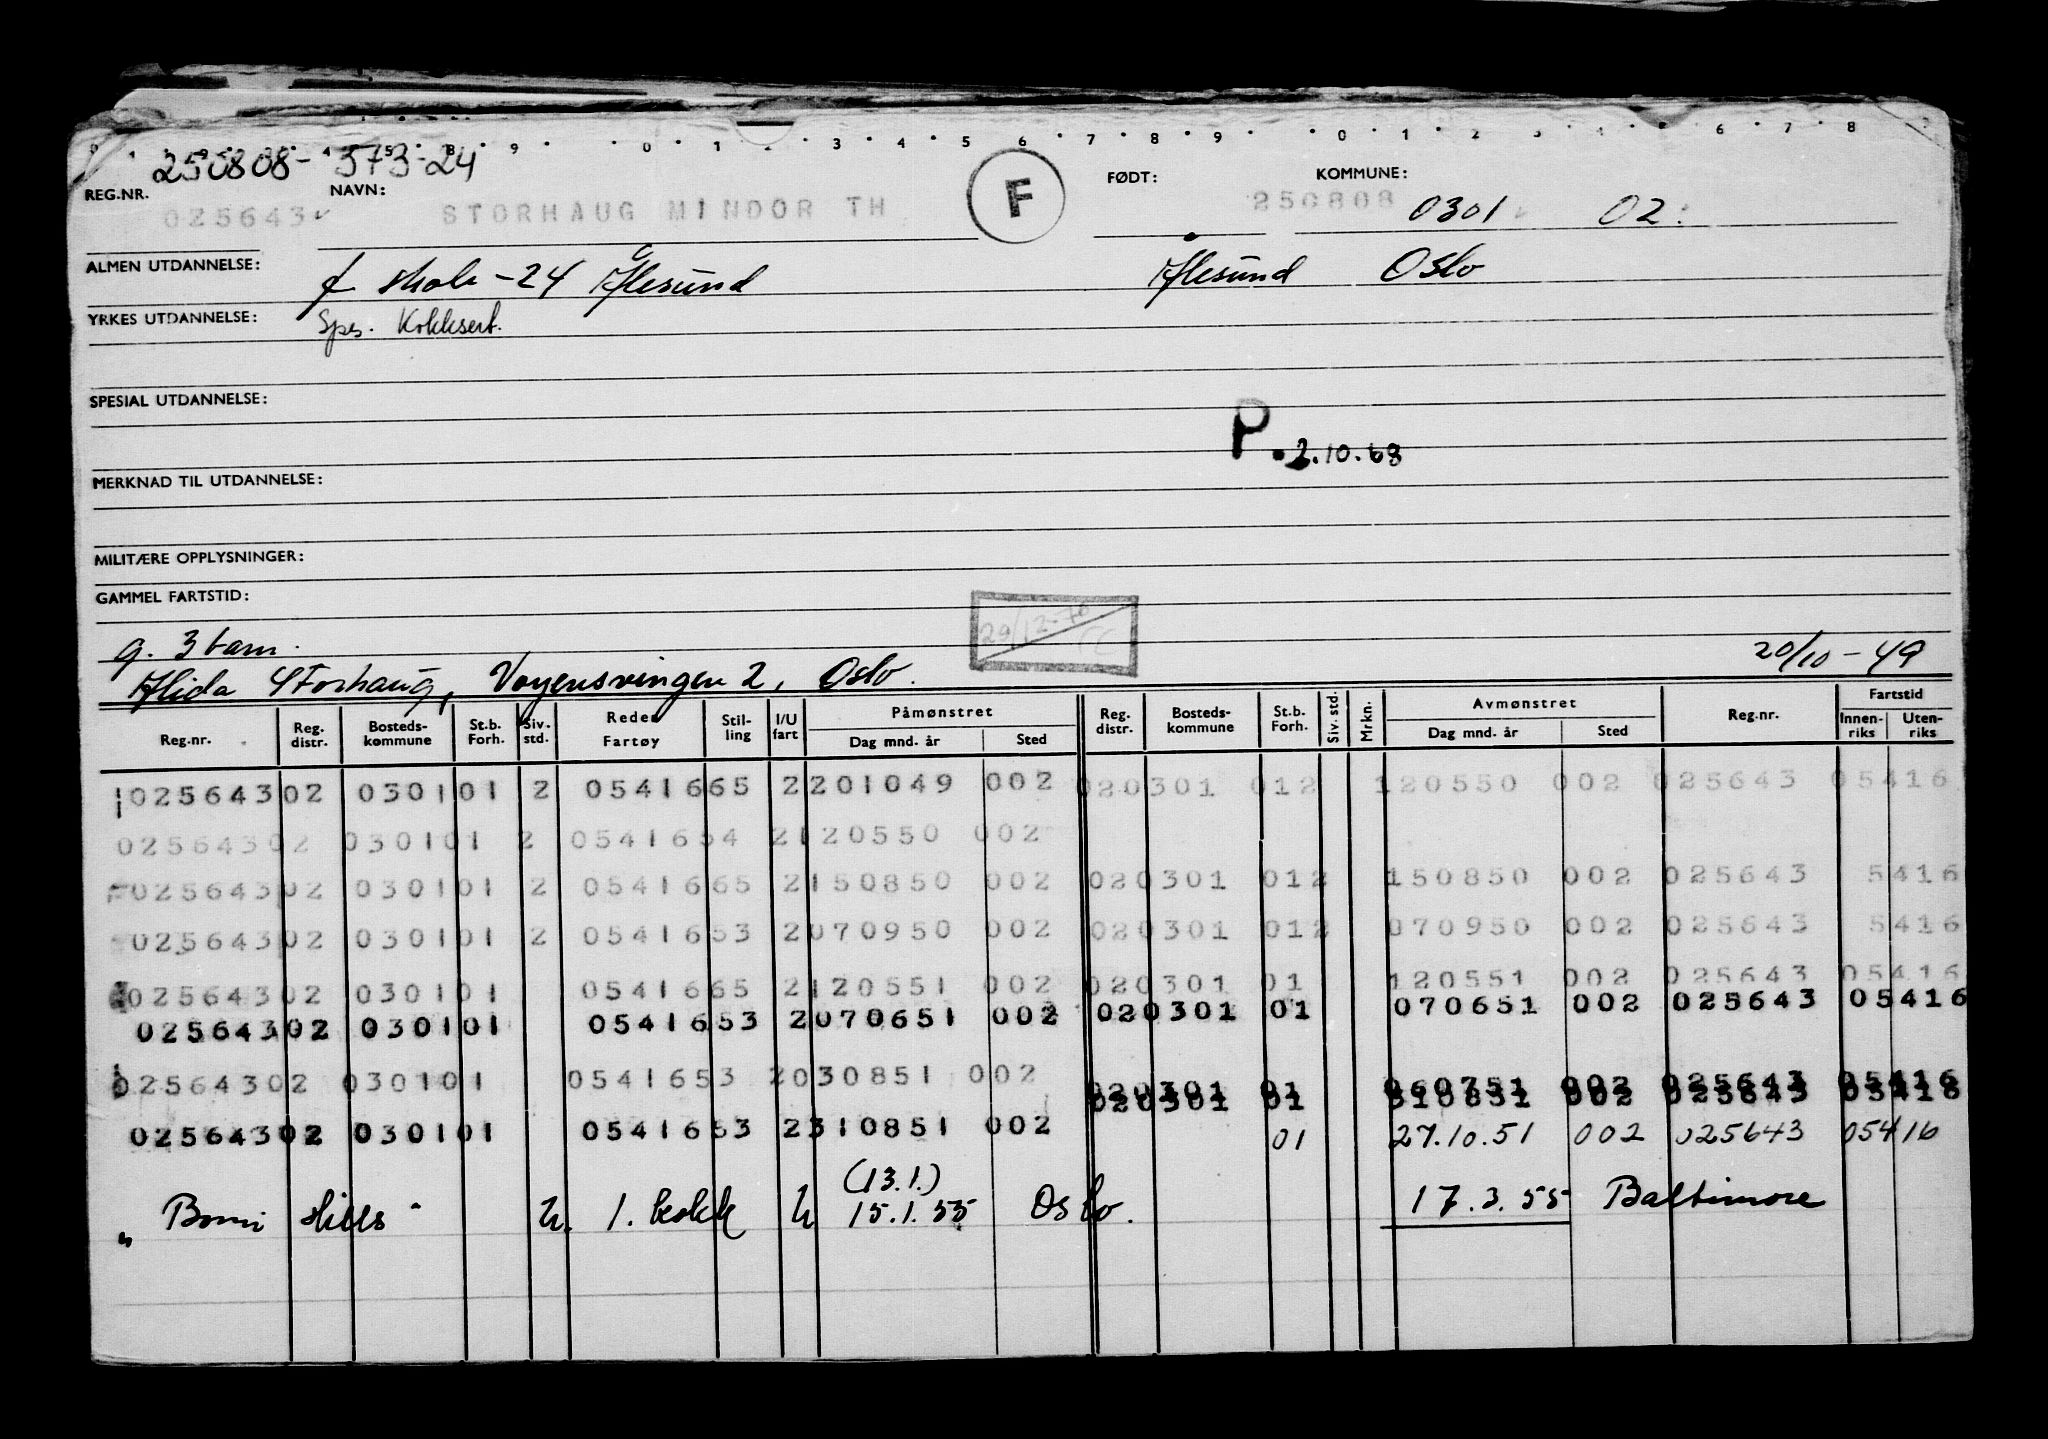 250808-37324
REG.NR.
NAVN:
FØDT:
KOMMUNE:
025643 STORHAUG MINDOR TH F 250808 0301 02
ALMEN UTDANNELSE: f skole -24 Ålesund Ålesund Oslo
YRKES UTDANNELSE: Spes. Kokksert.
SPESIAL UTDANNELSE:
P. 2.10.68
MERKNAD TIL UTDANNELSE:
MILITÆRE OPPLYSNINGER:
GAMMEL FARTSTID:
29/12-70
g. 3 barn. 20/10-49
Alida Storhaug, Vøyensvingen 2, Oslo.
Reg.nr. Reg. distr. Bosteds-kommune St.b. Forh. Siv. std. Rederi Fartøy Stil-ling I/U fart Påmønstret Dag mnd. år Sted Reg. distr. Bosteds-kommune St.b. Forh. Siv. std. Mrkn. Avmønstret Dag mnd. år Sted Reg.nr. Fartstid Innen-riks Uten-riks
02564302 030101 2 0541665 2201049 002 020301 012 120550 002 025643 05416
02564302 030101 2 0541654 2120550 002
02564302 030101 2 0541665 2150850 002 020301 012 150850 002 025643 5416
02564302 030101 2 0541653 2070950 002 020301 012 070950 002 025643 5416
02564302 030101 0541665 2120551 002 020301 01 120551 002 025643 05416
02564302 030101 0541653 2070651 002 020301 01 070651 002 025643 05416
02564302 030101 0541653 2030851 002 020301 01 060751 002 025643 05416
020301 01 310851 002 025643 05416
02564302 030101 0541653 2310851 002 01 27.10.51 002 025643 05416
(13.1.)
"Bomi Hills" U. 1. kokk U 15.1.55 Oslo. 17.3.55 Baltimore